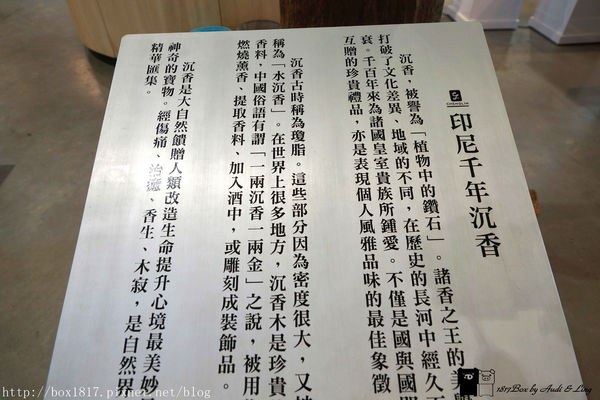 印尼千年沉香
沉香，被譽為「植物中的鑽石」。諸香之王的美
打破了文化差異、地域的不同，在歷史的長河中經久不
衰。千百年來為諸國皇室貴族所鍾愛。不僅是國與國
互贈的珍貴禮品，亦是表現個人風雅品味的最佳象徵
沉香古時稱為瓊脂。這些部分因為密度很大，又
稱為「水沉香」。在世界上很多地方，沉香木是珍貴
香料，中國俗語有謂「一兩沉香一兩金」之說，被用
燃燒薰香、提取香料、加入酒中，或雕刻成裝飾品。
沉香是大自然饋贈人類改造生命提升心境最美妙
神奇的寶物。經傷痛、治癒、香生、木寂，是自然界
精華匯集。
1817Box by Audi & Ling
http://box1817.pixnet.net/blog